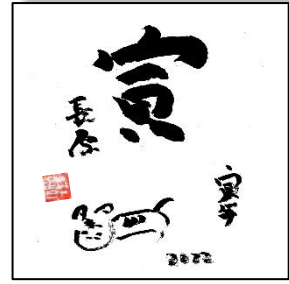 寅
長彦
寅年
2022